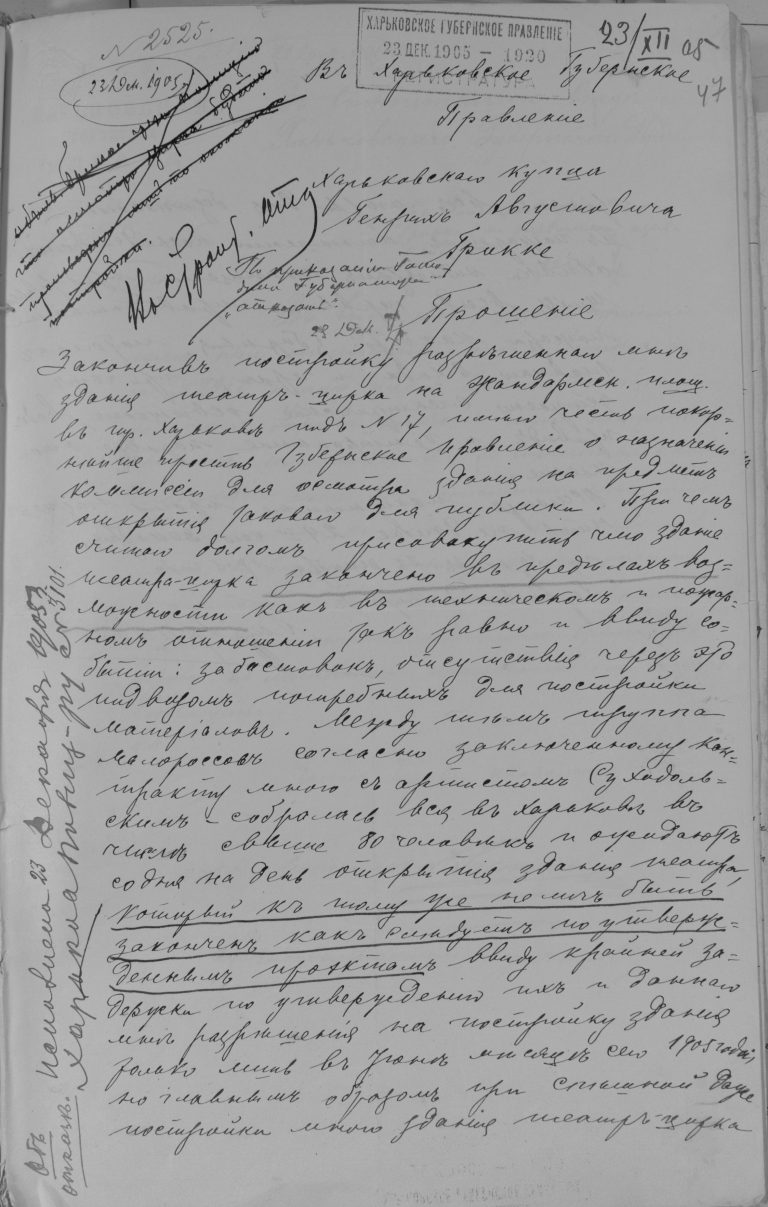 N 2525.
23 Дек. 1905 г.
ХАРЬКОВСКОЕ ГУБЕРНСКОЕ ПРАВЛЕНІЕ
23 ДЕК. 1905 — 1920
РЕГИСТРАТУРА
23/XII 05
47
Въ Харьковское Губернское
Правленіе
Харьковскаго купца
Генрихъ Августовича
Грикке
Строит. отд.
По приказанію Госпо-
дина Губернатора
„отказать“.
23 Дек.
Прошеніе
Закончивъ постройку разрѣшеннаго мнѣ
зданія театръ-цирка на Жандармск. площ.
въ гор. Харьковѣ подъ N 17, имѣю честь покор=
нѣйше просить Губернское Правленіе о назначеніи
коммиссіи для осмотра зданія на предметъ
открытія таковаго для публики. При чемъ
считаю долгомъ присовокупить что зданіе
театра-цирка закончено въ предѣлахъ воз=
можности какъ въ техническомъ и пожар-
номъ отношеніи такъ равно и ввиду со=
бытій: забастовокъ, отсутствія черезъ это
подвозомъ потребныхъ для постройки
матеріаловъ. Между тѣмъ труппа
малороссовъ согласно заключенному кон=
тракту мною съ артистомъ Суходоль=
скимъ - собралась вся въ Харьковъ въ
числѣ свыше 80 человѣкъ и ожидаютъ
со дня на день открытія зданія театра,
который къ тому же не могъ быть
законченъ какъ слѣдуетъ по утверж=
деннымъ проэктамъ ввиду крайней за=
держки по утвержденію ихъ и даннаго
мнѣ разрѣшенія на постройку зданія
только лишь въ Іюнѣ мѣсяцѣ сего 1905 года,
но главнымъ образомъ при спѣшной даже
постройки мною зданія театръ-цирка
Объ отказѣ.
Исполнено 23 Декабря 1905 г.
Харьков. Полиц-ру
N 5101.